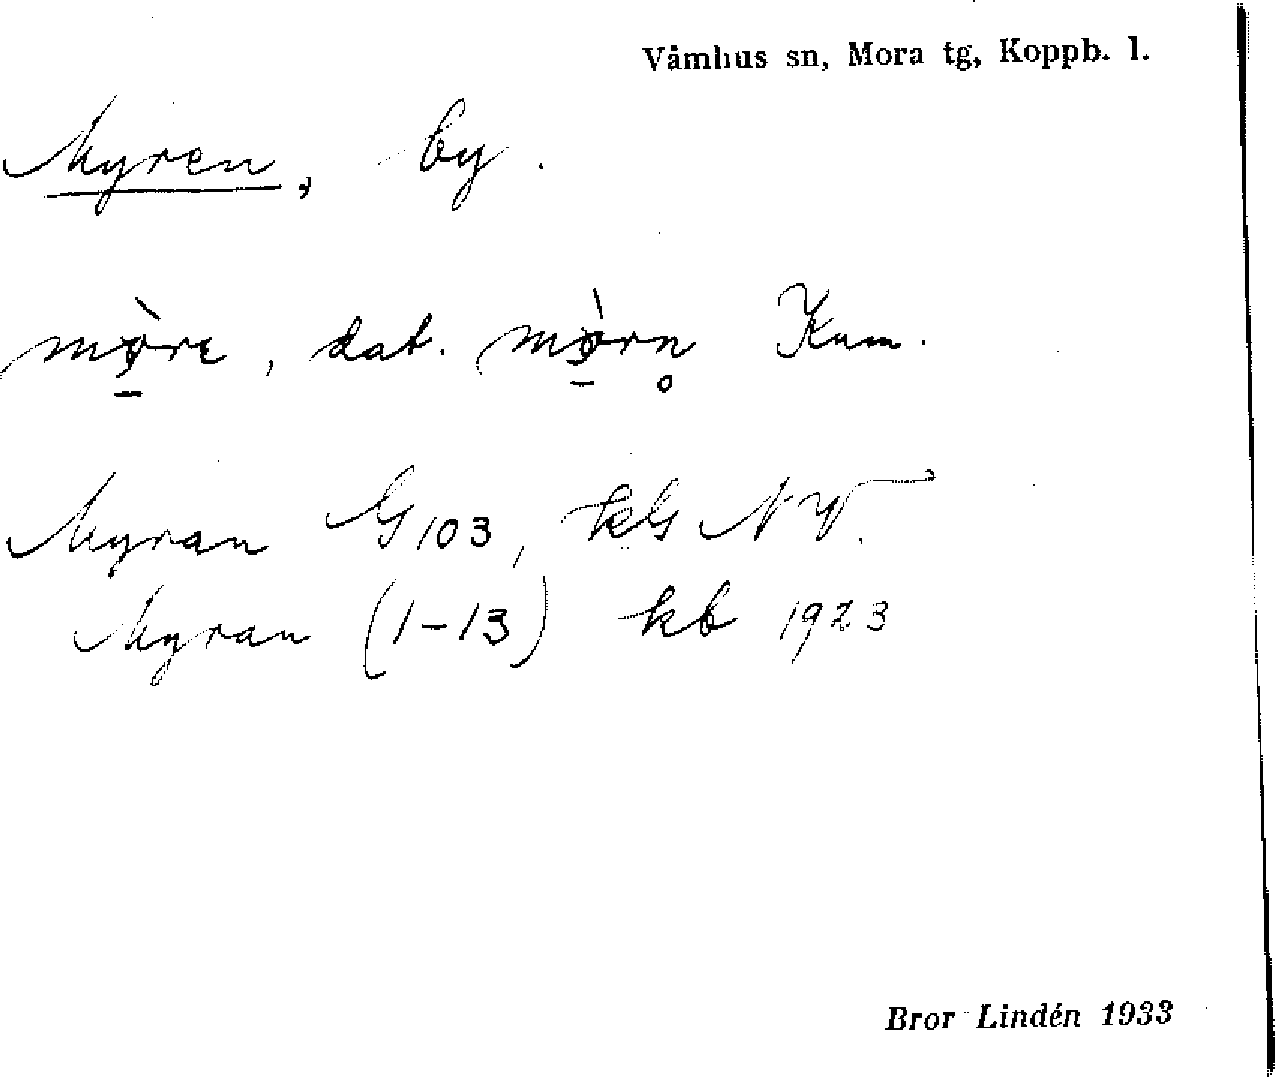 Våmhus sn, Mora tg, Koppb. l.
Myren, by.
dat. Kum.
Myran G 103, kls NV.
Myran (1-13) kb 1923
Bror Lindén 1933